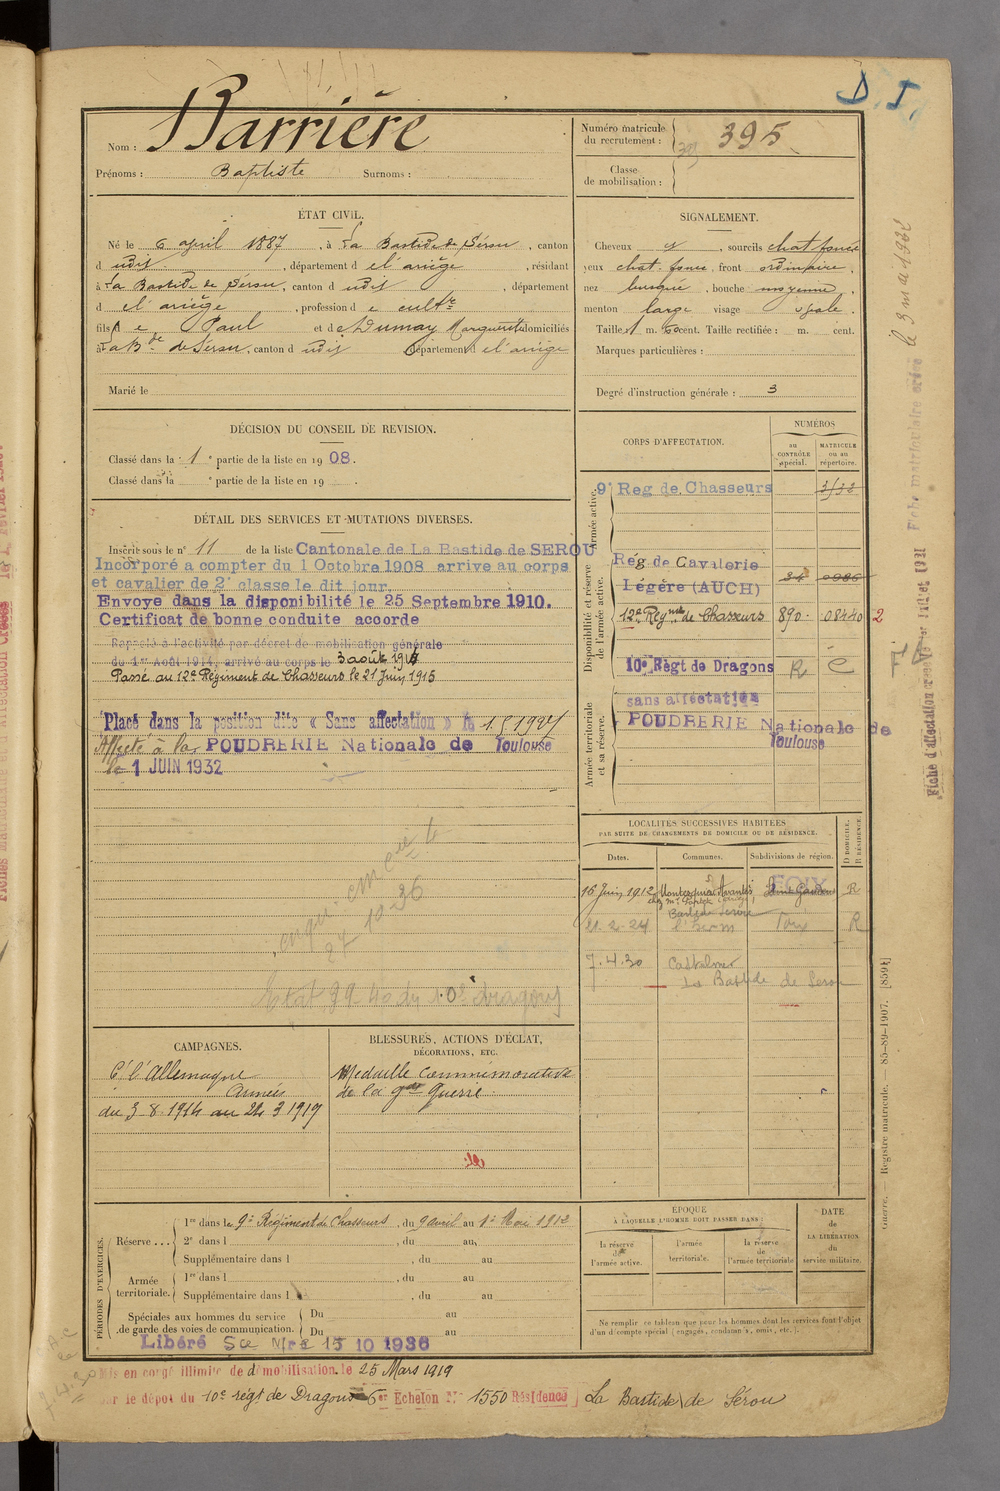 D. I.
Nom : Barrière
Prénoms : Baptiste Surnoms :
Numéro matricule du recrutement : 395
Classe de mobilisation :
ÉTAT CIVIL.
Né le 6 april 1887, à La Bastide de Sérou, canton
d udit, département d e l'ariège, résidant
à La Bastide de Sérou, canton d udit, département
d e l'ariège, profession d e cultr
fils d e Paul et d e Dumay Marguerite domiciliés
à La Bde de Sérou, canton d udit département d e l'ariège
Marié le
SIGNALEMENT.
Cheveux , sourcils chat. foncé
yeux chat. foncé, front ordinaire,
nez busqué, bouche moyenne,
menton large visage ovale.
Taille 1 m. cent. Taille rectifiée : m. cent.
Marques particulières :
Degré d'instruction générale : 3
DÉCISION DU CONSEIL DE REVISION.
Classé dans la 1e partie de la liste en 1908.
Classé dans la e partie de la liste en 19
DÉTAIL DES SERVICES ET MUTATIONS DIVERSES.
Inscrit sous le n° 11 de la liste Cantonale de La Bastide de SEROU
Incorporé a compter du 1 Octobre 1908 arrive au corps
et cavalier de 2e classe le dit jour.
Envoye dans la disponibilité le 25 Septembre 1910.
Certificat de bonne conduite accorde
Rappelé à l'activité par décret de mobilisation générale
du 1er Août 1914, arrivé au corps le 3 août 1914
Passé au 12e Régiment de Chasseurs le 21 Juin 1915
Placé dans la position dite « Sans affectation » le 1 5 1927
Affecté à la POUDRERIE Nationale de Toulouse
le 1 JUIN 1932
27 10 36
Etat 39-40 du 10e dragons
CORPS D'AFFECTATION.
NUMÉROS
au CONTRÔLE spécial.
MATRICULE ou au répertoire.
Armée active.
9e Reg de Chasseurs
Disponibilité et réserve de l'armée active.
Rég de Cavalerie
Légère (AUCH) 34 0986
12e Regmt de Chasseurs 890 08440 2
10e Règt de Dragons R C
Armée territoriale et sa réserve.
sans affectation
POUDRERIE Nationale de
Toulouse
LOCALITÉS SUCCESSIVES HABITÉES
PAR SUITE DE CHANGEMENTS DE DOMICILE OU DE RÉSIDENCE.
Dates. Communes. Subdivisions de région. D DOMICILE. R RÉSIDENCE.
FOIX
16 Juin 1912 Montesquieu Avantès Saint Gaudens R
21. 2. 24 l'Herm Foix R
7. 4. 30
La Bastide de Serou
CAMPAGNES.
C/ l'Allemagne
Armées
du 3-8-1914 au 24 3 1919
BLESSURES, ACTIONS D'ÉCLAT,
DÉCORATIONS, ETC.
Medaille Commémorative
de la gde Guerre
PÉRIODES D'EXERCICES.
Réserve ... 1re dans le 9e Régiment de Chasseurs, du 9 avril au 1er Mai 1912
2e dans l , du au
Supplémentaire dans l , du au
Armée territoriale. 1re dans l , du au
Supplémentaire dans l , du au
Spéciales aux hommes du service de garde des voies de communication. Du au
Du au
Libéré Sce Mre 15 10 1936
ÉPOQUE
À LAQUELLE L'HOMME DOIT PASSER DANS :
la réserve de l'armée active.
l'armée territoriale.
la réserve de l'armée territoriale
DATE de LA LIBÉRATION du service militaire.
Ne remplir ce tableau que pour les hommes dont les services font l'objet
d'un décompte spécial (engagés, condamnés, omis, etc.).
Mis en congé illimité de démobilisation le 25 Mars 1919
par le dépot du 10e régt de Dragons 6e Echelon N° 1550 Résidence La Bastide de Sérou
Fiche matriculaire créée le 3 mai 1932
Guerre. — Registre matricule. — 85-89-1907. [8594]